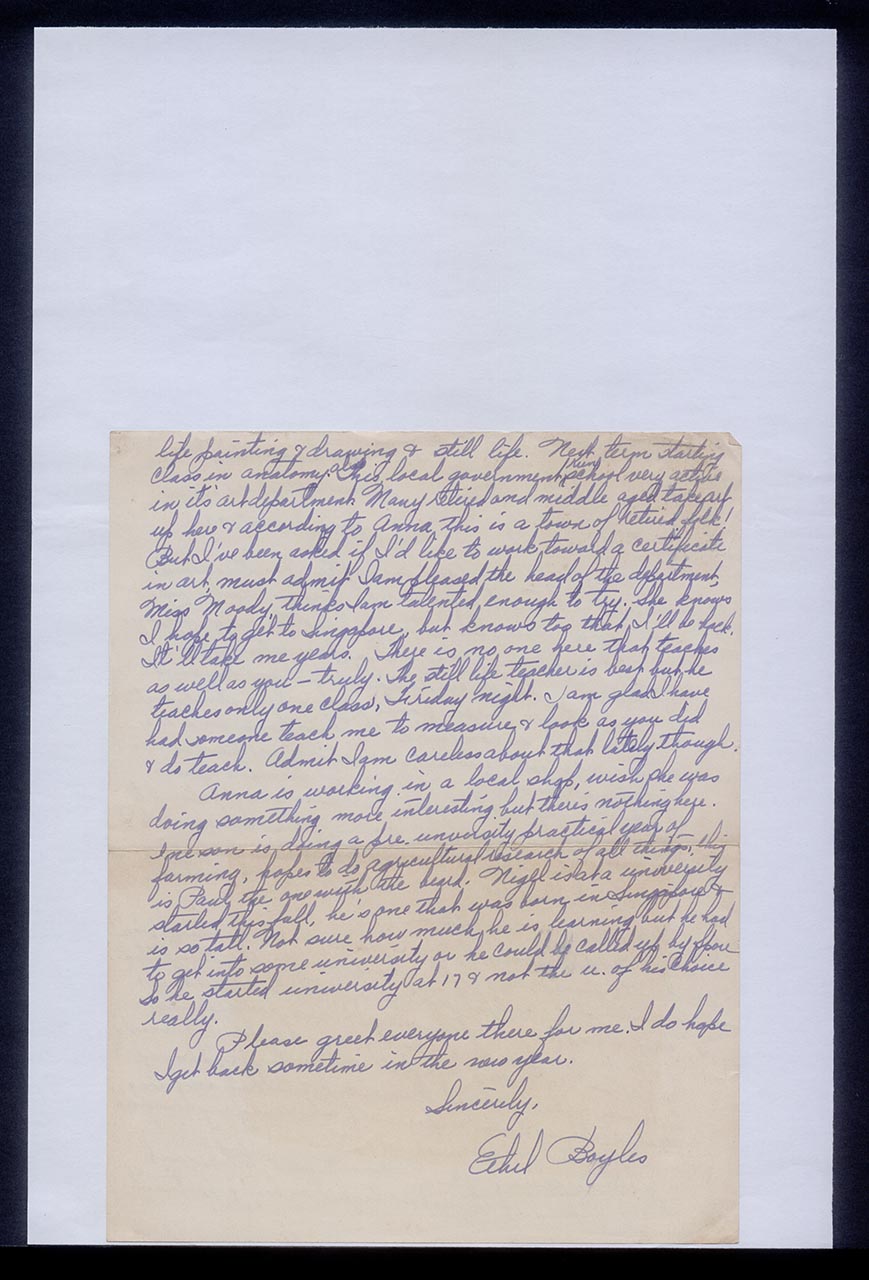 life painting & drawing & still life. Next term starting
class in anatomy. This local government run school very active
in its art department. Many retired and middle aged take art
up here & according to Anna this is a town of retired folk!
But I've been asked if I'd like to work toward a certificate
in art, must admit I am pleased the head of the department,
Miss Moody, thinks I am talented enough to try. She knows
I hope to get to Singapore, but knows too that I'll be back.
It'll take me years. There is no one here that teaches
as well as you – truly. The still life teacher is best but he
teaches only one class, Friday night. I am glad I have
had someone teach me to measure & look as you did
& do teach. Admit I am careless about that lately though.
Anna is working in a local shop, wish she was
doing something more interesting but there's nothing here.
One son is doing a pre. university practical year of
farming, hopes to do agricultural research of all things, this
is Paul the one with the beard. Nigel is at a university
started this fall, he's one that was born in Singapore &
is so tall. Not sure how much he is learning but he had
to get into some university or he could be called up by S'pore
So he started university at 17 & not the u. of his choice
really.
Please greet everyone there for me. I do hope
I get back sometime in the new year.
Sincerely,
Ethel Boyles